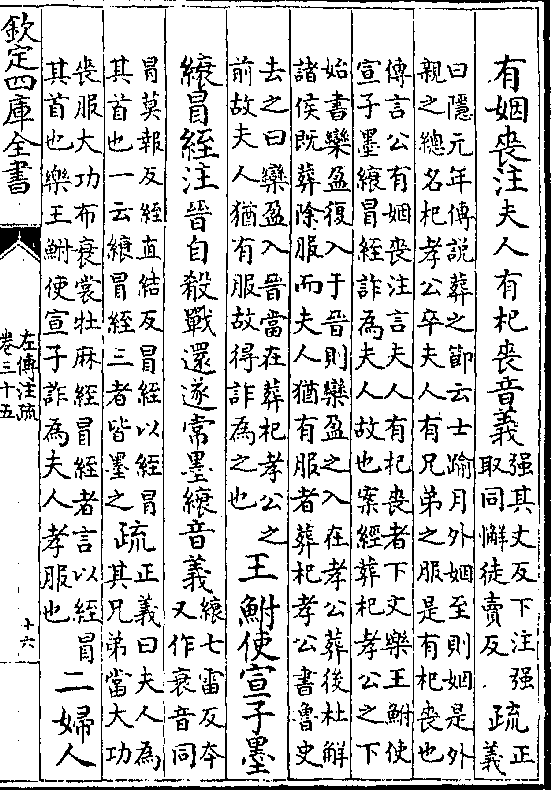 有姻喪注夫人有杞喪音義強其丈反下注強
取同懈徒賣反疏正
義
曰隱元年傳說葬之節云士踰月外姻至則姻是外
親之總名杞孝公卒夫人有兄弟之服是有杞喪也
傳言公有姻喪注言夫人有杞喪者下文樂王鮒使
宣子墨縗冒絰詐為夫人故也案經葬杞孝公之下
始書欒盈復入于晉則欒盈之入在孝公葬後杜解
諸侯既葬除服而夫人猶有服者葬杞孝公書魯史
去之曰欒盈入晉當在葬杞孝公之
前故夫人猶有服故得詐為之也
王鮒使宣子墨
縗冒絰注晉自殽戰還遂常墨縗音義縗七雷反本
又作衰音同
冒莫報反絰直結反冒絰以絰冒
其首也一云縗冒絰三者皆墨之
疏正義曰夫人為
其兄弟當大功
喪服大功布衰裳牡麻絰冒絰者言以絰冒
其首也樂王鮒使宣子詐為夫人孝服也
二婦人
欽定四庫全書
左傳注疏
卷三十五
十六